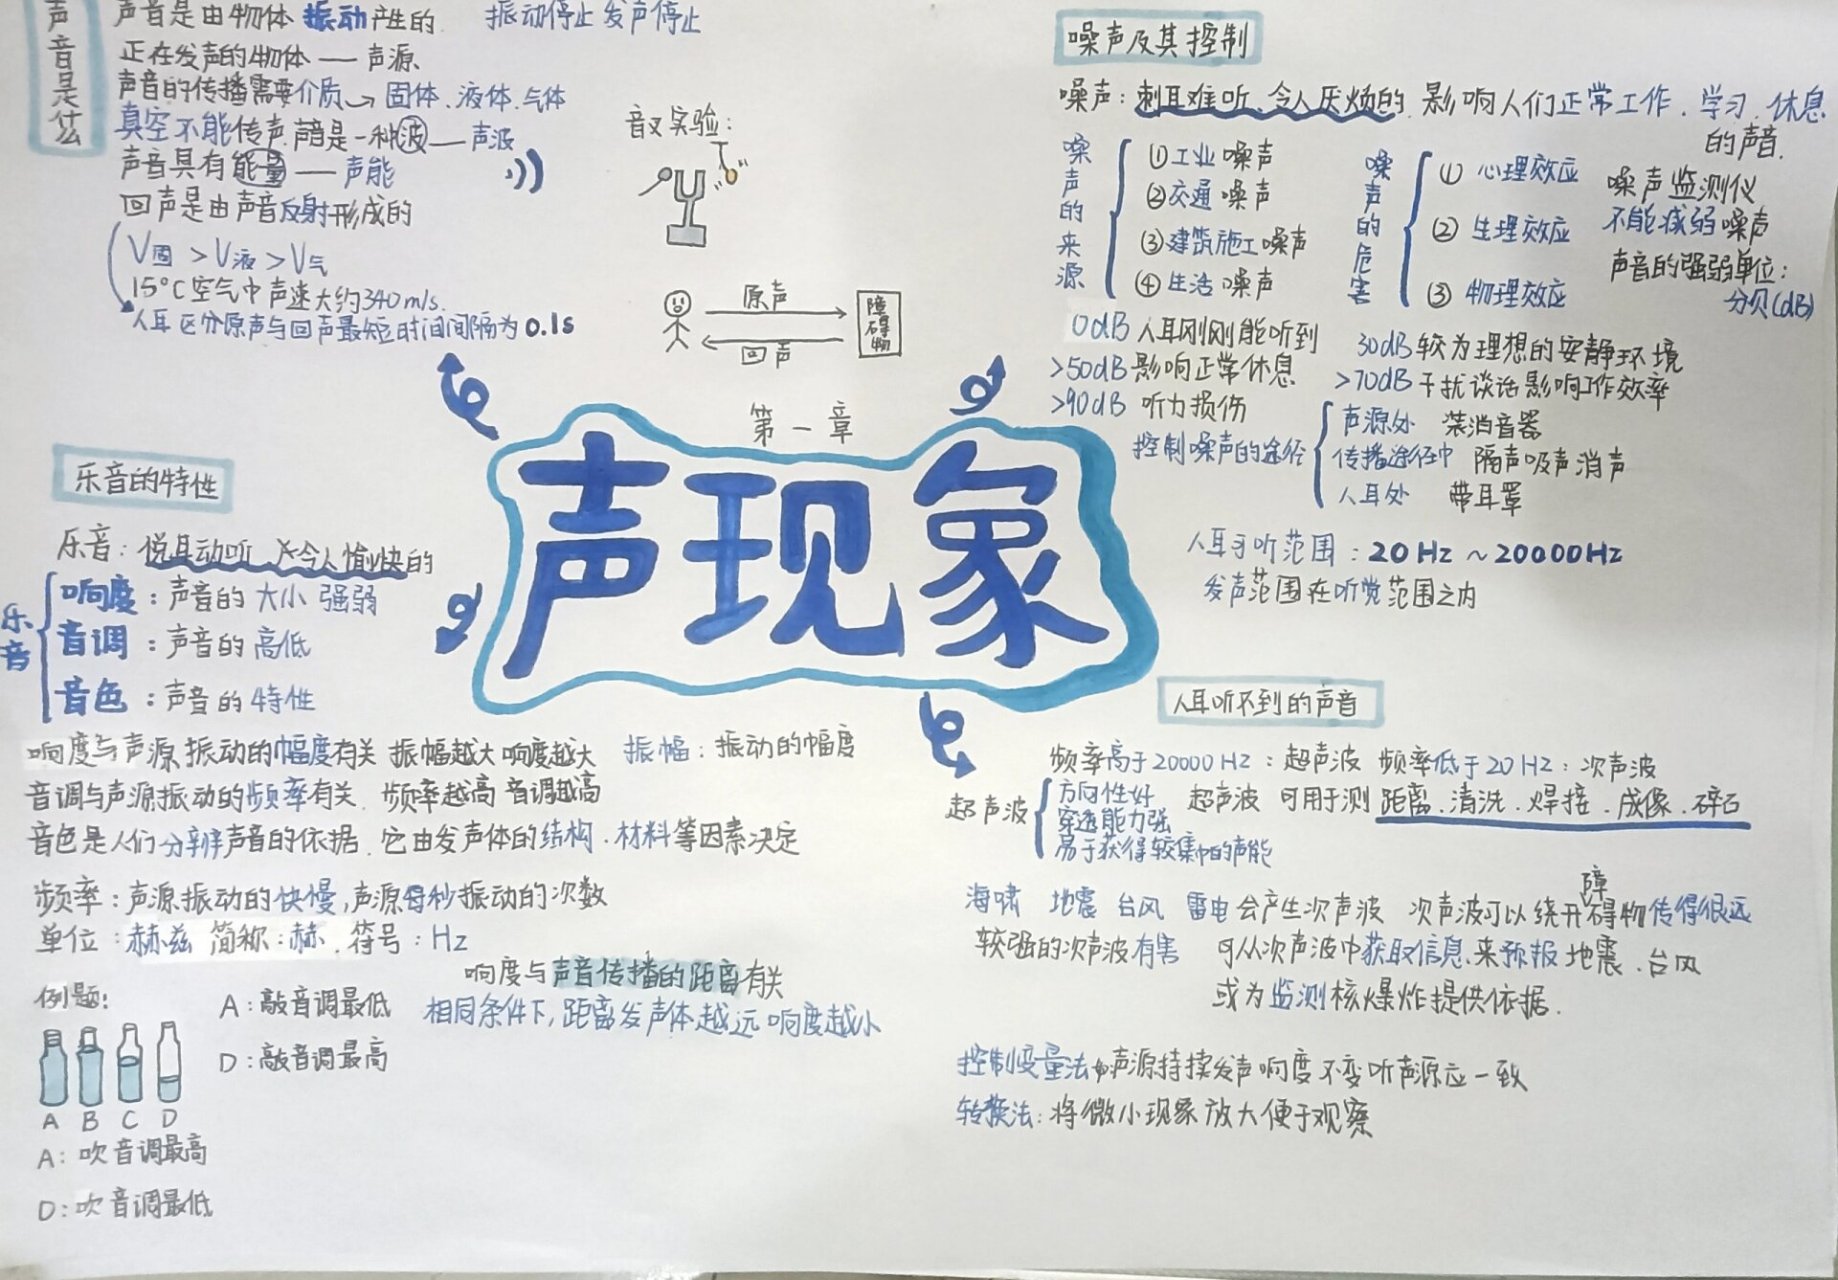 声音是什么
声音是由物体振动产生的. 振动停止发声停止
正在发声的物体——声源
声音的传播需要介质→固体.液体.气体
真空不能传声.声音是一种波——声波
声音具有能量——声能
回声是由声音反射形成的
V固>V液>V气
15°C空气中声速大约340m/s.
人耳区分原声与回声最短时间间隔为0.1s
音叉实验:
原声
回声
障碍物
噪声及其控制
噪声:刺耳难听.令人厌烦的.影响人们正常工作.学习.休息
的声音.
噪声的来源
①工业噪声
②交通噪声
③建筑施工噪声
④生活噪声
噪声的危害
①心理效应
②生理效应
③物理效应
噪声监测仪
不能减弱噪声
声音的强弱单位:
分贝(dB)
0dB人耳刚刚能听到 30dB较为理想的安静环境
>50dB影响正常休息 >70dB干扰谈话影响工作效率
>90dB 听力损伤
控制噪声的途径
声源处 装消音器
传播途径中 隔声吸声消声
人耳处 带耳罩
人耳可听范围:20Hz~20000Hz
发声范围在听觉范围之内
第一章
声现象
乐音的特性
乐音:悦耳动听.令人愉快的
乐音
响度:声音的大小 强弱
音调:声音的高低
音色:声音的特性
响度与声源振动的幅度有关 振幅越大响度越大 振幅:振动的幅度
音调与声源振动的频率有关.频率越高音调越高
音色是人们分辨声音的依据.它由发声体的结构.材料等因素决定
频率:声源振动的快慢,声源每秒振动的次数
单位:赫兹 简称:赫.符号:Hz
响度与声音传播的距离有关
相同条件下,距离发声体越远响度越小
例题:
A:敲音调最低
D:敲音调最高
A B C D
A:吹音调最高
D:吹音调最低
人耳听不到的声音
频率高于20000Hz:超声波 频率低于20Hz:次声波
超声波
方向性好
穿透能力强
易于获得较集中的声能
超声波可用于测距离.清洗.焊接.成像.碎石
海啸 地震 台风 雷电会产生次声波 次声波可以绕开障碍物传得很远
较强的次声波有害 可从次声波中获取信息.来预报地震.台风
或为监测核爆炸提供依据.
控制变量法:声源持续发声响度不变听声源应一致
转换法:将微小现象放大便于观察